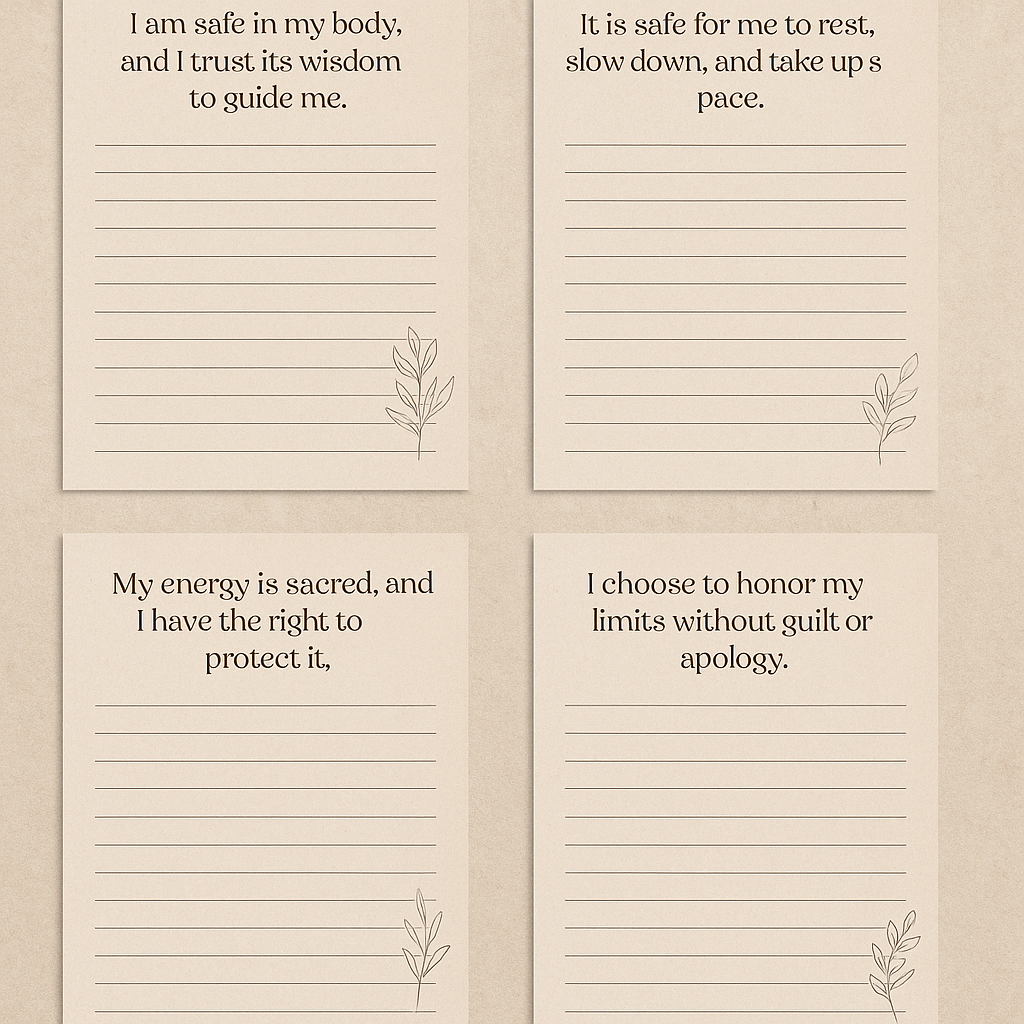 I am safe in my body,
and I trust its wisdom
to guide me.
It is safe for me to rest,
slow down, and take up s
pace.
My energy is sacred, and
I have the right to
protect it,
I choose to honor my
limits without guilt or
apology.